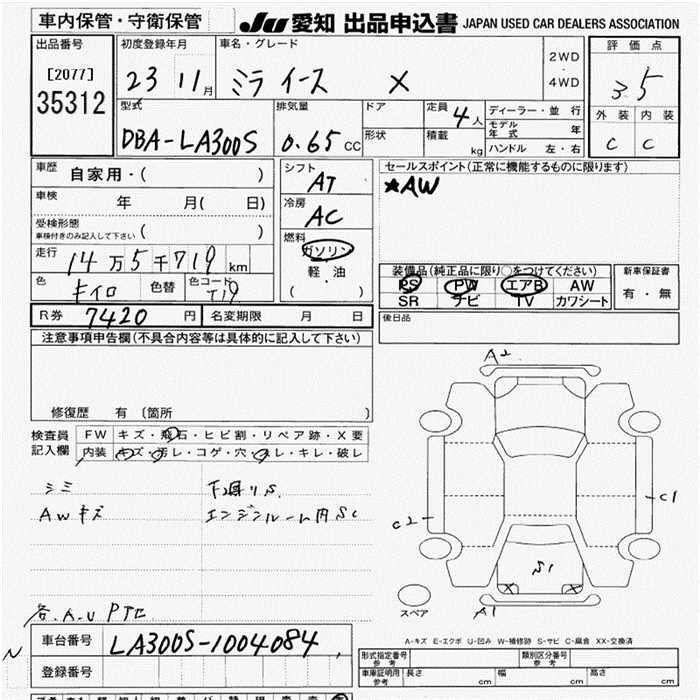 車内保管・守衛保管
JU 愛知 出品申込書 JAPAN USED CAR DEALERS ASSOCIATION
出品番号
[2077]
35312
初度登録年月
23 11月
車名・グレード
ミライース X
2WD
・
4WD
評価点
3.5
外装 内装
C C
型式
DBA-LA300S
排気量
0.65 CC
ドア
形状
定員 4人
積載 kg
ディーラー・並行
モデル年式 年
ハンドル 左・右
車歴 自家用・( )
車検 年 月( 日)
受検形態
車検付きのみ記入して下さい ( )
走行 14万5千719km
色 キイロ 色替 色コード T19
R券 7420円 名変期限 月 日
シフト
AT
冷房
AC
燃料
ガソリン
軽油
( )
セールスポイント(正常に機能するものに限ります)
★AW
装備品(純正品に限り○をつけてください)
PS PW エアB AW
SR ナビ TV カワシート
新車保証書
有・無
後日品
注意事項申告欄(不具合内容等は具体的に記入して下さい)
修復歴 有 〔箇所 〕
検査員
記入欄
FW キズ・飛石・ヒビ割・リペア跡・X要
内装 キズ・汚レ・コゲ・穴・スレ・キレ・破レ
シミ
AWキズ
下廻りS
エンジンルーム内SC
各A.U PTC
A2
C2
C1
S1
X X
A1
スペア
A-キズ E-エクボ U-凹み W-補修跡 S-サビ C-腐食 XX-交換済
N
車台番号 LA300S-1004084
登録番号
形式指定番号
参考
類別区分番号
参考
車庫証明用
参考
長さ cm 幅 cm 高さ cm